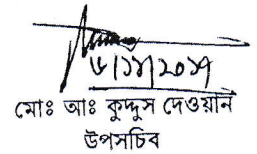 ৬/১১/২০১৭
মোঃ আঃ কুদ্দুস দেওয়ান
উপসচিব